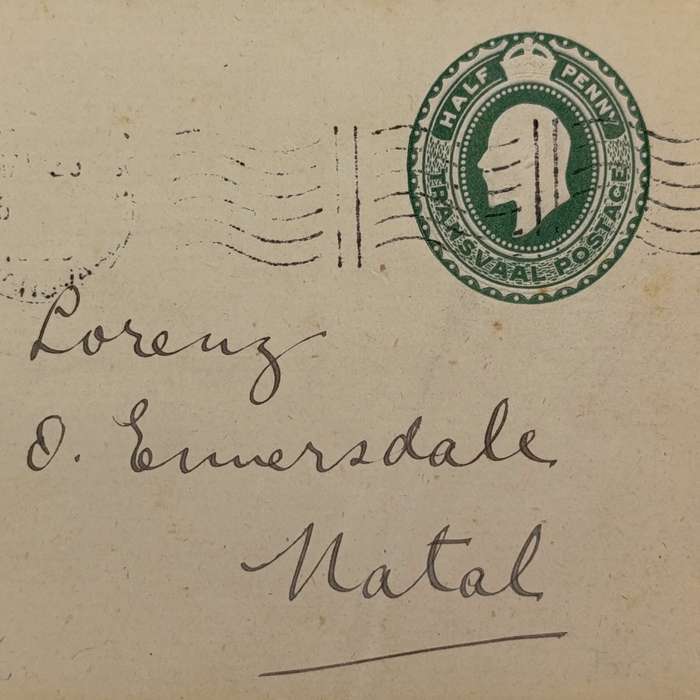 HALF PENNY
TRANSVAAL POSTAGE
Lorenz
O. Ennersdale
Natal